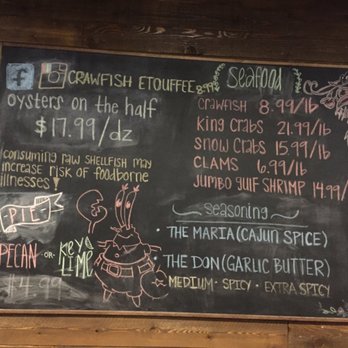 f CRAWFISH ETOUFFEE 8.99
oysters on the half
$17.99/dz
consuming raw shellfish may
increase risk of foodborne
illnesses!
PIE
PECAN OR KEY LIME
$4.99
Seafood
CRAWFISH 8.99/lb
King Crabs 21.99/lb
Snow Crabs 15.99/lb
CLAMS 6.99/lb
JUMBO GULF SHRIMP 14.99/
Seasoning
• THE MARIA (CAJUN SPICE)
• THE DON (GARLIC BUTTER)
MEDIUM · SPICY · EXTRA SPICY